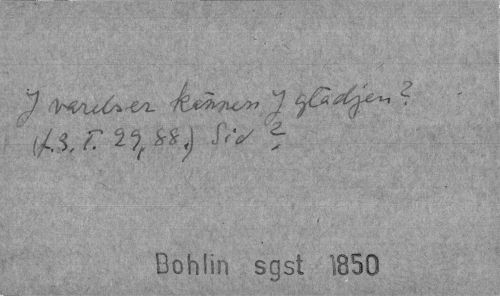 J varelser kännen J glädjen?
(L.S.T. 29, 88.) Sid ?
Bohlin sgst 1850